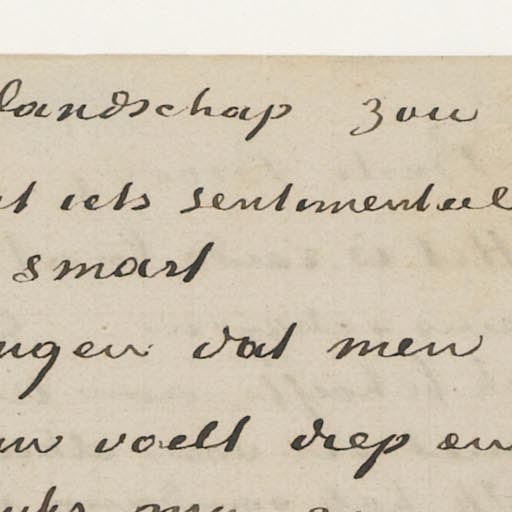 landschap zou
iets sentimenteel
smart
dat men
voelt diep en